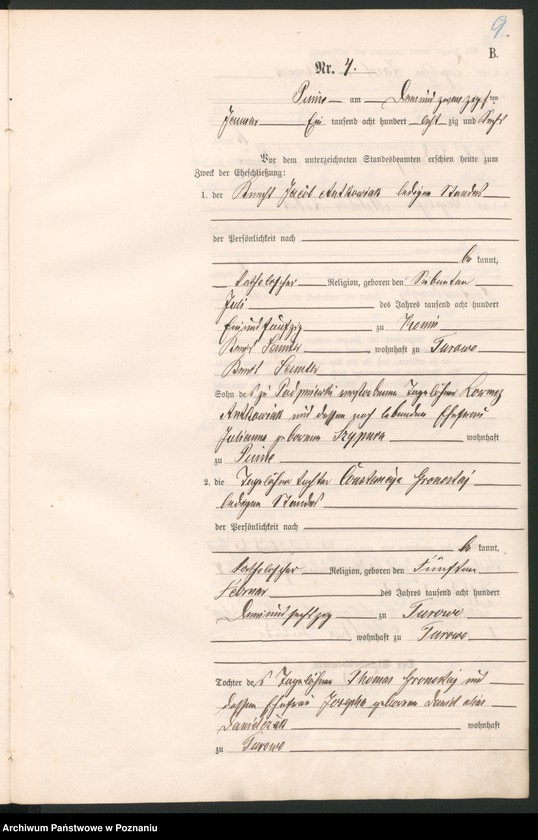 9.
B.
Nr. 4.
Pinne am Drei und zwanzigsten
Januar Ein tausend acht hundert acht zig und Sechs
Vor dem unterzeichneten Standesbeamten erschien heute zum
Zweck der Eheschließung:
1. der Knecht Jacob Antkowiak ledigen Standes
der Persönlichkeit nach
be kannt,
katholischer Religion, geboren den Siebenten
Juli des Jahres tausend acht hundert
Ein und fünfzig zu Konin
Kreis Samter, wohnhaft zu Turowo
Kreis Samter
Sohn des zu verstorbenen Tagelöhner
Antkowiak und dessen noch lebenden Ehefrau
Julianna geborenen wohnhaft
zu Pinne
2. die Tagelöhnertochter Gronostaj
ledigen Standes
der Persönlichkeit nach
be kannt,
katholischer Religion, geboren den Fünften
Februar des Jahres tausend acht hundert
Drei und sechszig zu Turowo
, wohnhaft zu Turowo
Tochter des Tagelöhner Thomas Gronostaj und
dessen Ehefrau Josepha geborenen Daniel alias
Danielczak wohnhaft
zu Turowo
Archiwum Państwowe w Poznaniu